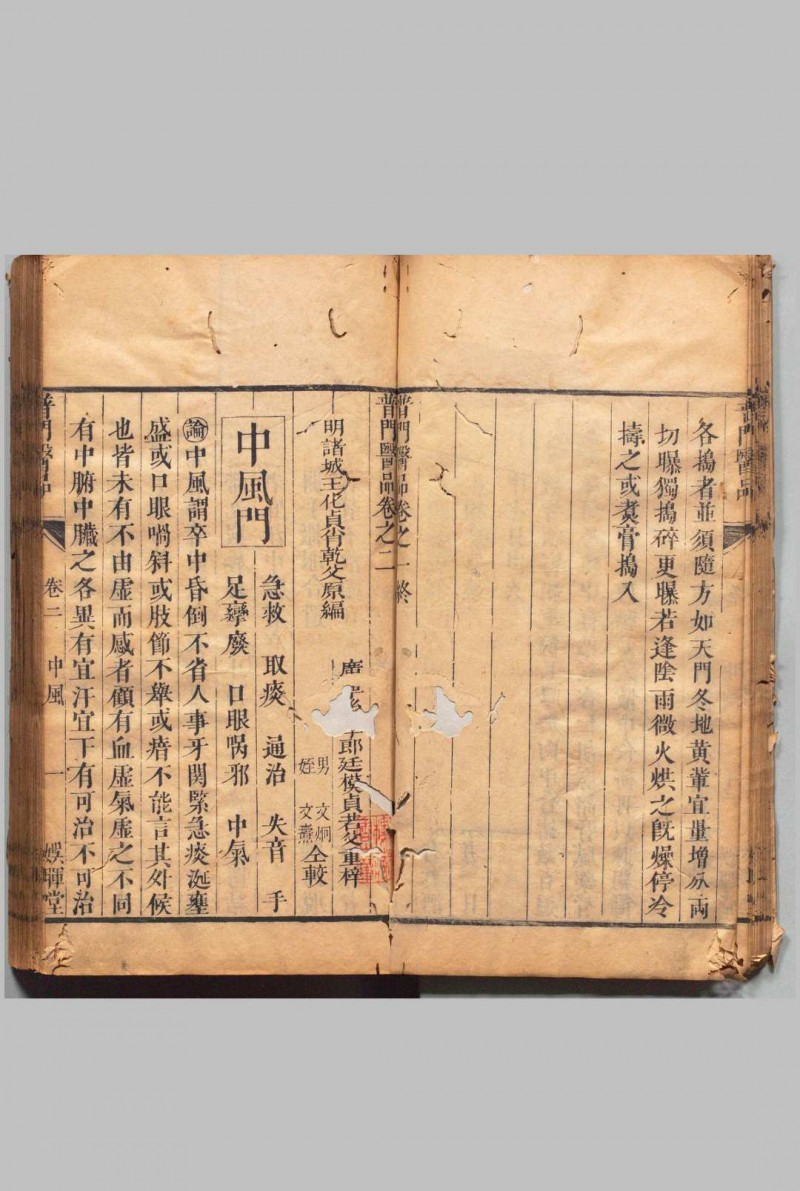 普門醫品
各搗者並須隨方如天門冬地黃輩宜量增分兩
切曝獨搗碎更曝若逢陰雨微火烘之旣燥停冷
擣之或煑膏搗入
普門醫品卷之一終
普門醫品卷之二
郎廷模貞若父重梓
明諸城王化貞肖乾父原編
男 文炯
姪 文燾
仝較
急救 取痰 通治 失音 手
足攣廢 口眼喎邪 中氣
中風門
論中風謂卒中昏倒不省人事牙関緊急痰涎壅
盛或口眼喎斜或肢節不舉或瘖不能言其外候
也皆未有不由虛而感者顧有血虛氣虛之不同
有中腑中臟之各異有宜汗宜下有可治不可治
普門醫品 卷二 中風 一 娛暉堂